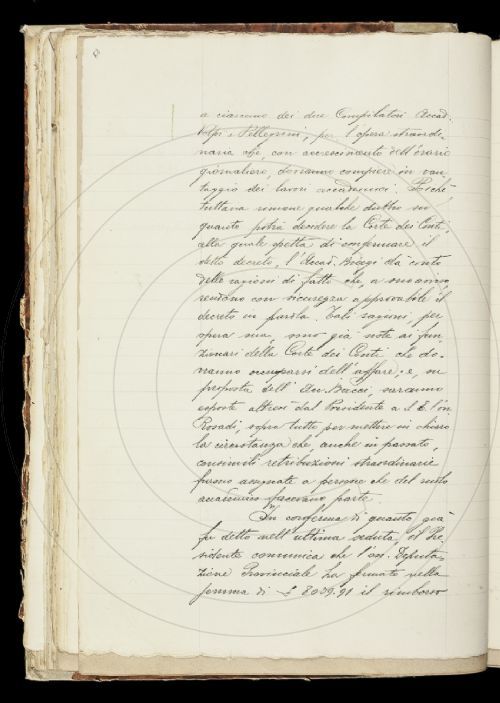 a ciascuno dei due Compilatori Accad.
Volpi e Pellegrini, per l'opera straordi-
naria che, con accrescimento dell'orario
giornaliero, dovranno compiere in van-
taggio dei lavori accademici. Poiché
tuttavia rimane qualche dubbio su
quanto potrà decidere la Corte dei Conti,
alla quale spetta di confermare il
detto decreto, l'Accad. Biagi dà conto
delle ragioni di fatto che, a suo avviso,
rendono con sicurezza approvabile il
decreto in parola. Tali ragioni, per
opera sua, sono già note ai fun-
zionari della Corte dei Conti che do-
vranno occuparsi dell'affare; e, su
proposta dell' Bacci, saranno
esposte altresì dal Presidente a S. E. l'on.
Rosadi, sopra tutto per mettere in chiaro
la circostanza che, anche in passato,
consimili retribuzioni straordinarie
furono assegnate a persone che del ruolo
accademico facevano parte.
In conferma di quanto già
fu detto nell'ultima seduta, il Pre-
sidente comunica che l'on. Deputa-
zione Provinciale ha fermato nella
somma di £ 8039.91 il rimborso